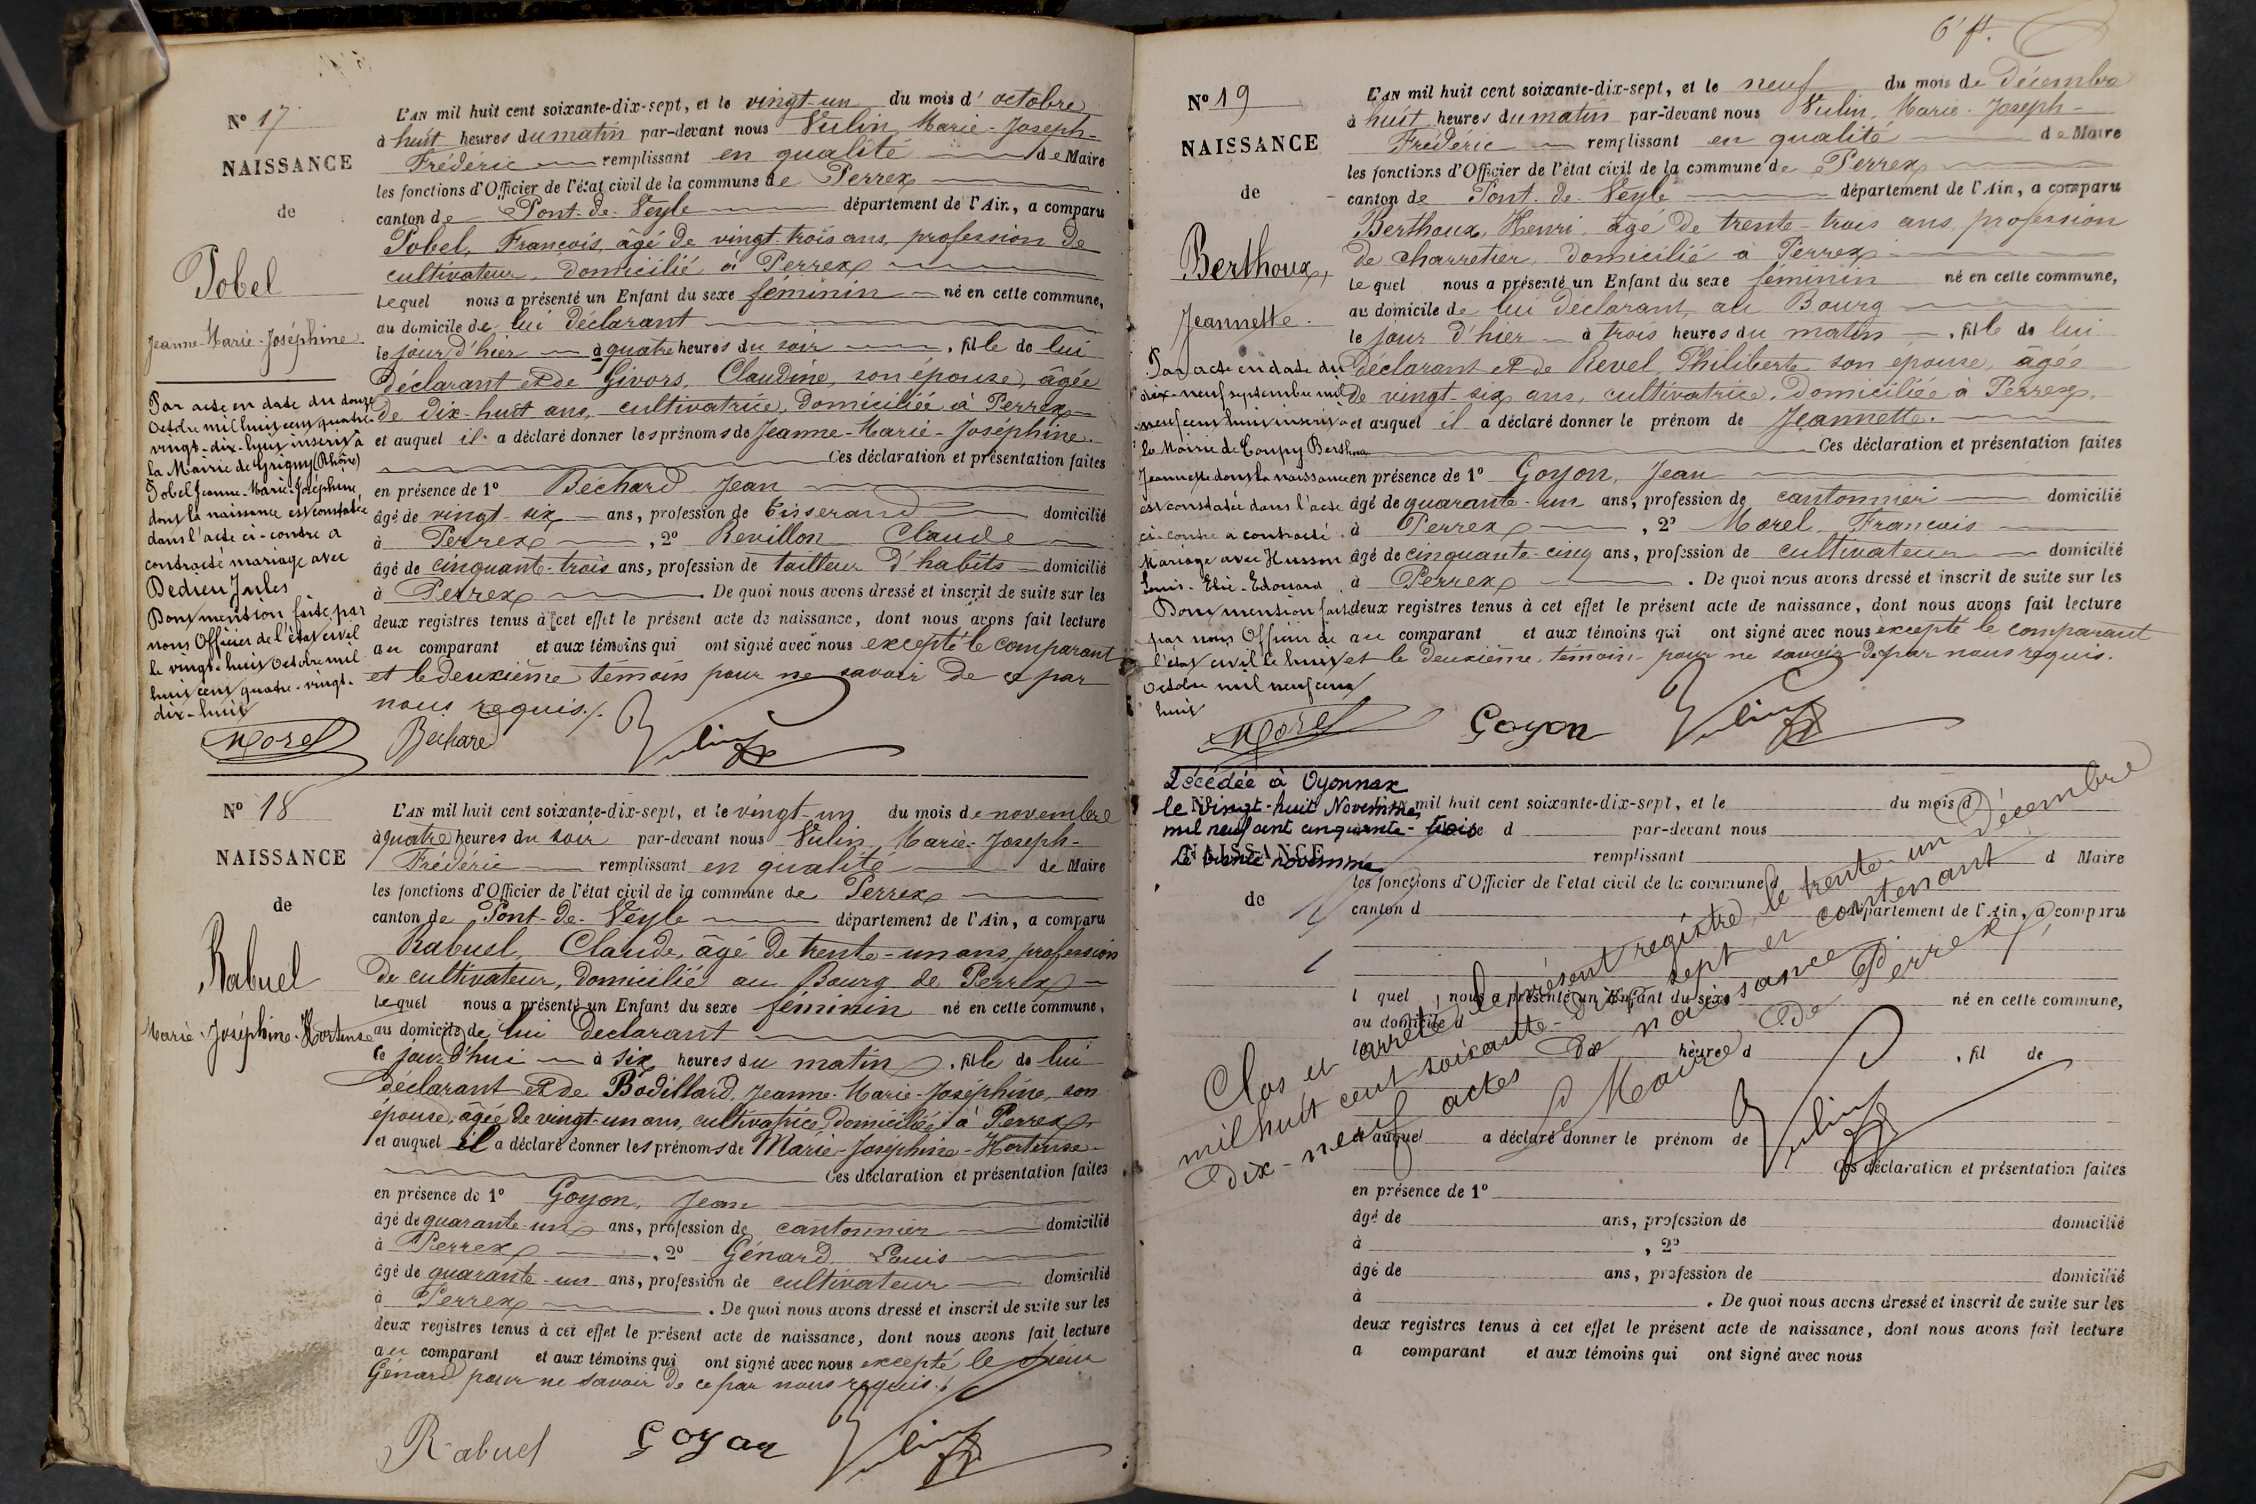 N° 17
NAISSANCE
de
Pobel
Jeanne-Marie-Joséphine.
Par acte en date du douze
Octobre mil huit cent quatre-
vingt-dix-huit inscrit à
la Mairie de Grigny (Rhône)
Pobel Jeanne-Marie-Joséphine
dont la naissance est constatée
dans l'acte ci-contre a
contracté mariage avec
Dedieu Jules
Dont mention faite par
nous Officier de l'état civil
le vingt-huit Octobre mil
huit cent quatre-vingt-
dix-huit
Morel
L'AN mil huit cent soixante-dix-sept, et le vingt-un du mois d'octobre
à huit heures du matin par-devant nous Vulin, Marie-Joseph-
Fréderic remplissant en qualité de Maire
les fonctions d'Officier de l'état civil de la commune de Perrex
canton de Pont-de-Veyle département de l'Ain, a comparu
Pobel, François, âgé de vingt-trois ans, profession de
cultivateur, domicilié à Perrex
lequel nous a présenté un Enfant du sexe féminin né en cette commune,
au domicile de lui déclarant
le jour d'hier à quatre heures du soir, fille de lui
déclarant et de Givors, Claudine, son épouse, âgée
de dix-huit ans, cultivatrice, domiciliée à Perrex
et auquel il a déclaré donner les prénoms de Jeanne-Marie-Joséphine.
Ces déclaration et présentation faites
en présence de 1° Béchard Jean
âgé de vingt-six ans, profession de tisserand domicilié
à Perrex, 2° Revillon Claude
âgé de cinquante-trois ans, profession de tailleur d'habits domicilié
à Perrex. De quoi nous avons dressé et inscrit de suite sur les
deux registres tenus à cet effet le présent acte de naissance, dont nous avons fait lecture
au comparant et aux témoins qui ont signé avec nous excepté le comparant
et le deuxième témoin pour ne savoir de ce par
nous requis./.
Bechard Vulin
N° 18
NAISSANCE
de
Rabuel
Marie-Joséphine-Hortense
L'AN mil huit cent soixante-dix-sept, et le vingt-un du mois de novembre
à quatre heures du soir par-devant nous Vulin, Marie-Joseph-
Fréderic remplissant en qualité de Maire
les fonctions d'Officier de l'état civil de la commune de Perrex
canton de Pont-de-Veyle département de l'Ain, a comparu
Rabuel, Claude, âgé de trente-un ans, profession
de cultivateur, domicilié au Bourg de Perrex
lequel nous a présenté un Enfant du sexe féminin né en cette commune,
au domicile de lui déclarant
ce jourd'hui à six heures du matin, fille de lui
déclarant et de Bodillard, Jeanne-Marie-Joséphine, son
épouse, âgée de vingt-un ans, cultivatrice, domiciliée à Perrex
et auquel il a déclaré donner les prénoms de Marie-Joséphine-Hortense.
Ces déclaration et présentation faites
en présence de 1° Goyon, Jean
âgé de quarante-un ans, profession de cantonnier domicilié
à Perrex, 2° Génard Louis
âgé de quarante-un ans, profession de cultivateur domicilié
à Perrex. De quoi nous avons dressé et inscrit de suite sur les
deux registres tenus à cet effet le présent acte de naissance, dont nous avons fait lecture
au comparant et aux témoins qui ont signé avec nous excepté le sieur
Génard pour ne savoir de ce par nous requis./.
Rabuel Goyon Vulin
N° 19
NAISSANCE
de
Berthoux,
Jeannette.
Par acte en date du
dix-neuf septembre mil
neuf cent huit inscrit à
la Mairie de Coupy Berthoux
Jeannette dont la naissance
est constatée dans l'acte
ci-contre a contracté
Mariage avec Husson
Louis-Elie-Edouard
Dont mention faite
par nous Officier de
l'état civil le huit
Octobre mil neuf cent
huit
Morel
L'AN mil huit cent soixante-dix-sept, et le neuf du mois de Décembre
à huit heures du matin par-devant nous Vulin, Marie-Joseph-
Fréderic remplissant en qualité de Maire
les fonctions d'Officier de l'état civil de la commune de Perrex
canton de Pont-de-Veyle département de l'Ain, a comparu
Berthoux, Henri, âgé de trente-trois ans, profession
de charretier, domicilié à Perrex
lequel nous a présenté un Enfant du sexe féminin né en cette commune,
au domicile de lui déclarant, au Bourg
le jour d'hier à trois heures du matin, fille de lui
déclarant et de Revel, Philiberte son épouse, âgée
de vingt-six ans, cultivatrice, domiciliée à Perrex,
et auquel il a déclaré donner le prénom de Jeannette.
Ces déclaration et présentation faites
en présence de 1° Goyon, Jean
âgé de quarante-un ans, profession de cantonnier domicilié
à Perrex, 2° Morel François
âgé de cinquante-cinq ans, profession de cultivateur domicilié
à Perrex. De quoi nous avons dressé et inscrit de suite sur les
deux registres tenus à cet effet le présent acte de naissance, dont nous avons fait lecture
au comparant et aux témoins qui ont signé avec nous excepté le comparant
et le deuxième témoin pour ne savoir de par nous requis.
Goyon Vulin
Décédée à Oyonnax
le vingt-huit Novembre
mil neuf cent cinquante-trois
le trente novembre
NAISSANCE
de
mil huit cent soixante-dix-sept, et le du mois d
d par-devant nous
remplissant d Maire
les fonctions d'Officier de l'état civil de la commune d
canton d département de l'Ain, a comparu
l quel nous a présenté un Enfant du sexe né en cette commune,
au domicile d
heures d, fil de
et auquel a déclaré donner le prénom de
Ces déclaration et présentation faites
en présence de 1°
âgé de ans, profession de domicilié
à , 2°
âgé de ans, profession de domicilié
à . De quoi nous avons dressé et inscrit de suite sur les
deux registres tenus à cet effet le présent acte de naissance, dont nous avons fait lecture
a comparant et aux témoins qui ont signé avec nous
Clos et arrêté le présent registre, le trente-un décembre
mil huit cent soixante-dix-sept et contenant
dix-neuf actes de naissance
Maire de Perrex
Vulin